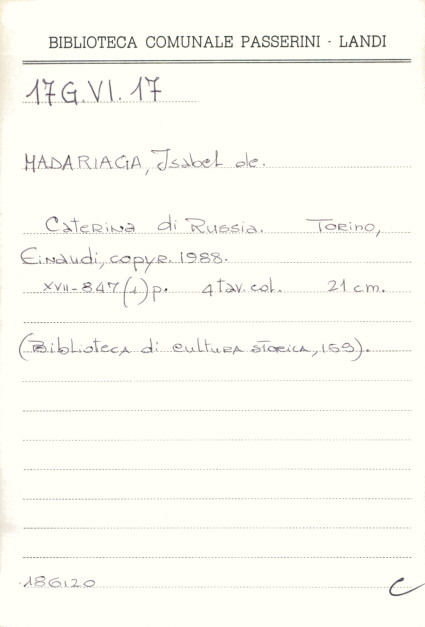 BIBLIOTECA COMUNALE PASSERINI - LANDI
17G.VI.17
MADARIAGA, Isabel de.
Caterina di Russia. Torino,
Einaudi, copyr. 1988.
XVII-847(1)p. 4 tav. col. 21 cm.
(Biblioteca di cultura storica, 159).
186120
C